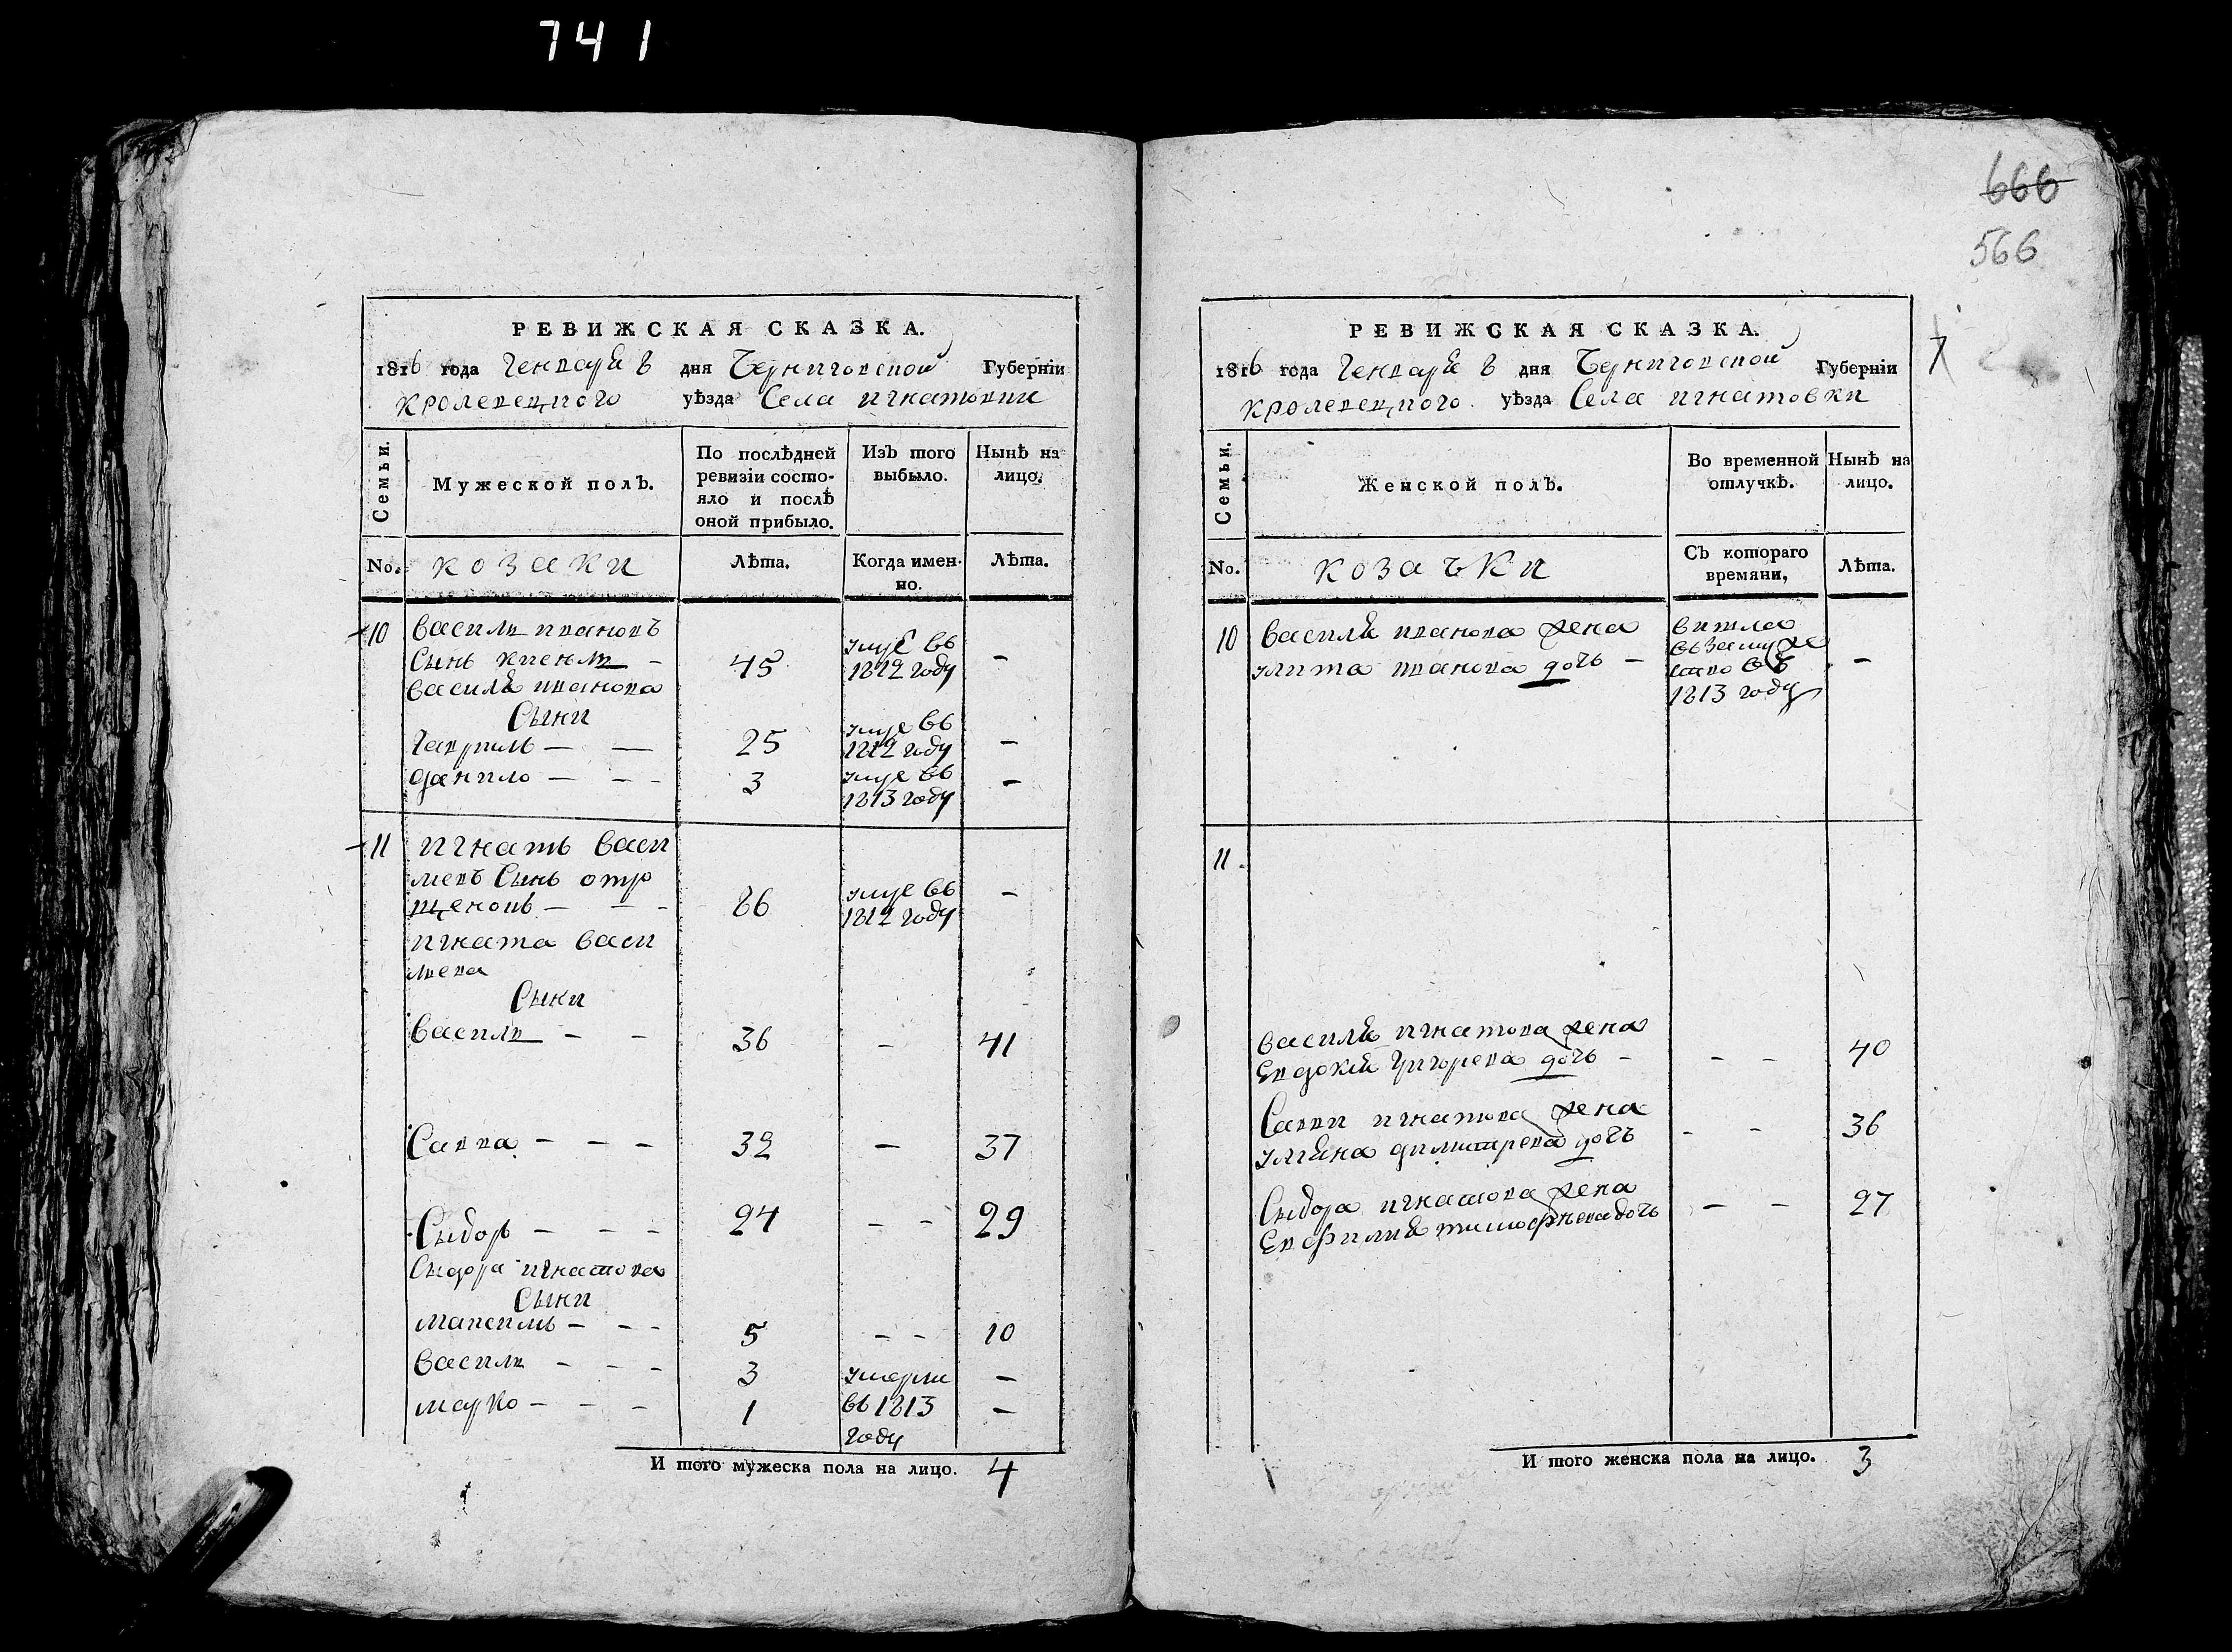 741
666
566
РЕВИЖСКАЯ СКАЗКА.
1816 года Генваря дня Черниговской Губернїи
кролевецкого уѣзда Села игнатовки
Семьи.
Мужеской полъ.
По послѣдней ревизїи состояло и послѣ оной прибыло.
Изъ того выбыло.
Нынѣ на лицо.
No.
козаки
Лѣта.
Когда именно.
Лѣта.
10
василь ивановъ
сынъ
45
умре въ
1812 году
—
василя иванова
сыни
гавриль — —
25
умре въ
1812 году
—
данило — — —
3
умре въ
1813 году
—
11
игнатъ васи
левъ сынъ отро
щенокъ — — —
86
умре въ
1812 году
—
игната васи
лева
сыни
василь — —
36
—
41
Савва — — —
32
—
37
Сыдоръ — — —
24
— —
29
Сыдора игнатова
сыни
максимъ — — —
5
— —
10
василь — — —
3
умерли
—
марко — — —
1
въ 1813
году
—
И того мужеска пола на лицо. 4
РЕВИЖСКАЯ СКАЗКА.
1816 года Генваря дня Черниговской Губернїи
кролевецкого уѣзда Села игнатовки
Семьи.
Женской полъ.
Во временной отлучкѣ.
Нынѣ на лицо.
No.
козачки
Съ котораго времяни,
Лѣта.
10
василя иванова жена
улита иванова дочь —
вишла
въ замуже
ство въ
1813 году
—
11
василя игнатова жена
Евдокия григорева дочь —
— —
40
Савви игнатова жена
улияна димитрева дочь
— —
36
Сыдора игнатова жена
Евфимия тимофѣева дочь
— —
27
И того женска пола на лицо. 3